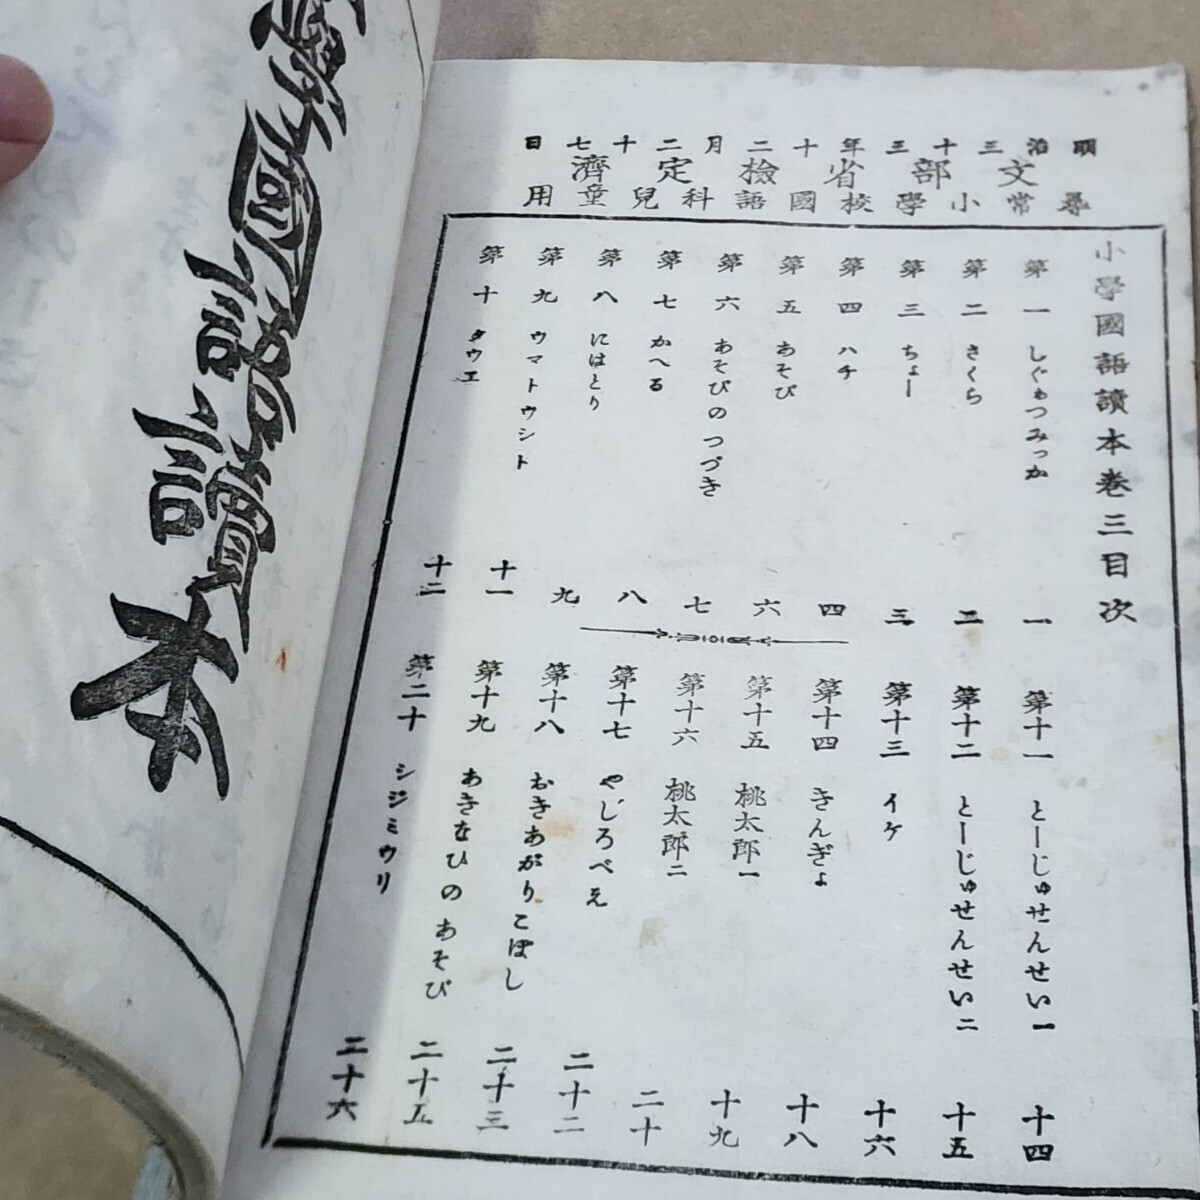 明治三十三年十二月二十七日
文部省檢定濟
尋常小學校國語科兒童用
小學國語讀本卷三目次
第一 しぐゎつみっか 一
第二 さくら 二
第三 ちょー 三
第四 ハチ 四
第五 あそび 六
第六 あそびのつづき 七
第七 かへる 八
第八 にはとり 九
第九 ウマトウシト 十一
第十 タウエ 十二
第十一 とーじゅせんせい一 十四
第十二 とーじゅせんせい二 十五
第十三 イケ 十六
第十四 きんぎょ 十八
第十五 桃太郎一 十九
第十六 桃太郎二 二十
第十七 やじろべえ 二十二
第十八 おきあがりこぼし 二十三
第十九 あきなひのあそび 二十五
第二十 シジミウリ 二十六
國語讀本